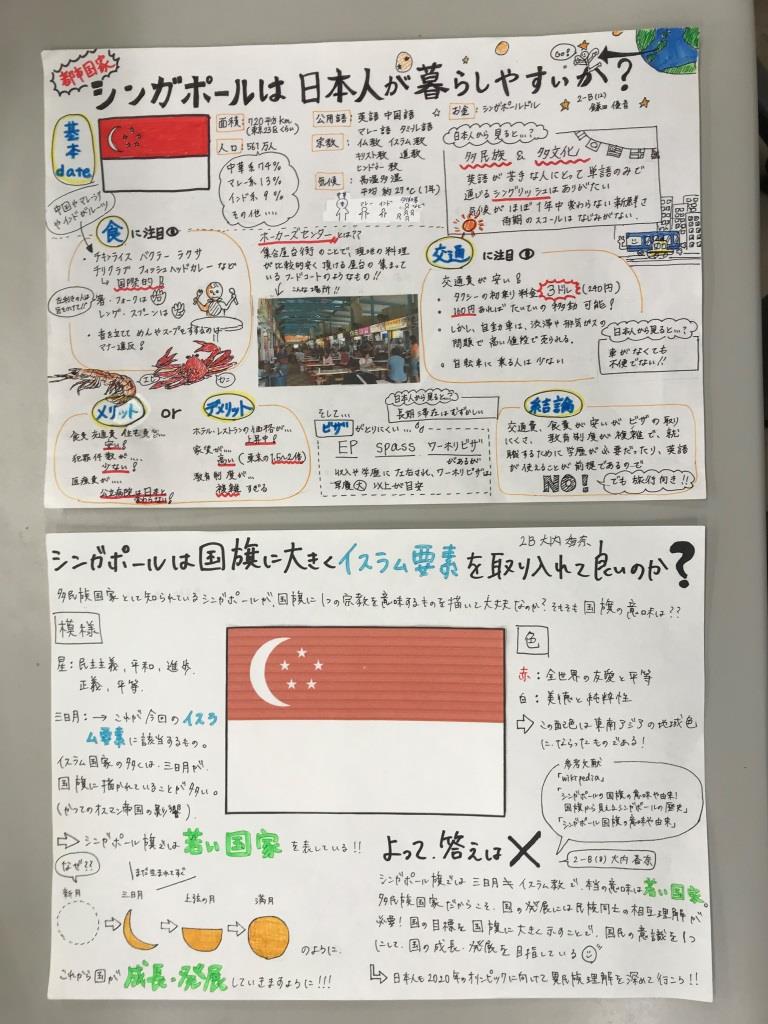 都市国家
シンガポールは日本人が暮らしやすいか?
GO!
2-B(12)
鎌田優音
基本
date
面積: 720平方km
(東京23区くらい)
人口: 561万人
中華系74%
マレー系13%
インド系9%
その他….
公用語: 英語 中国語
マレー語 タミル語
宗教: 仏教 イスラム教
キリスト教 道教
ヒンドゥー教
気候: 高温多湿
平均 約27℃(1年)
お金: シンガポールドル
日本人から見ると…?
多民族 & 多文化!
英語が苦手な人にとって単語のみで
通じるシングリッシュはありがたい
気候がほぼ1年中変わらない新鮮さ
雨期のスコールはなじみがない.
中国やマレーシア
やインドがルーツ
食に注目
・チキンライス バクテー ラクサ
チリクラブ フィッシュヘッドカレーなど
↳国際的!
・箸・フォークは
レンゲ・スプーンは
・音を立ててめんやスープをすするのは
マナー違反!
エビ
カニ
ホーカーズセンターとは??
集合屋台街のことで、現地の料理
が比較的安く頂ける屋台の集まって
いるフードコートのようなもの!!
↓こんな場所!!
交通に注目
交通費が安い!
・タクシーの初乗り料金 3ドル(240円)
・160円あればたいていの移動可能!
・しかし、自動車は、渋滞や排気ガスの
問題で高い値段で売られる.
・自転車に乗る人は少ない
日本人から見ると…?
車がなくても
不便でない!!
メリット or デメリット
食費 交通費 住宅費が…
安い!
犯罪件数が….
少ない!
医療費が….
公立病院は日本と
変わらない!
ホテル・レストランの価格が…
上昇中!
家賃が…
高い (東京の1.5〜2倍)
教育制度が…
複雑すぎる
そして…
日本人から見ると…?
長期滞在はむずかしい
ビザがとりにくい…
EP spass ワーホリビザ
があるが
収入や学歴に左右され、ワーホリビザは
年歴大以上が目安
結論
交通費、食費が安いがビザの取り
にくさ、教育制度が複雑で、就
職するために学歴が必要だったり、英語
が使えることが前提であるので
NO! でも旅行向き!!
2B 大内杏奈
シンガポールは国旗に大きくイスラム要素を取り入れて良いのか?
多民族国家として知られているシンガポールが、国旗に1つの宗教を意味するものを描いて大丈夫なのか?そもそも国旗の意味は??
模様
星: 民主主義、平和、進歩
正義、平等.
三日月: → これが今回のイスラ
ム要素に該当するもの。
イスラム国家の多くは、三日月が、
国旗に描かれていることが多い。
(かつてのオスマン帝国の影響)
色
赤: 全世界の友愛と平等
白: 美徳と純粋性
⇨ この配色は東南アジアの地域色
にならったものである!
参考文献
「wikipedia」
「シンガポールの国旗の意味や由来!
国旗から見えるシンガポールの歴史」
「シンガポール国旗の意味や由来」
2-B(8) 大内杏奈
⇨ シンガポール旗では若い国家を表している!!
なぜ??
まだ生まれたて
新月
三日月
上弦の月
満月
のように、
これから国が成長・発展していきますように!!!
よって、答えは×
シンガポール旗では三日月≠イスラム教で、本当の意味は若い国家。
多民族国家だからこそ、国の発展には民族同士の相互理解が
必要!国の目標を国旗に大きく示すことで、国民の意識を1つ
にして、国の成長・発展を目指している
↳ 日本人も2020年のオリンピックに向けて異民族理解を深めて行こう!!